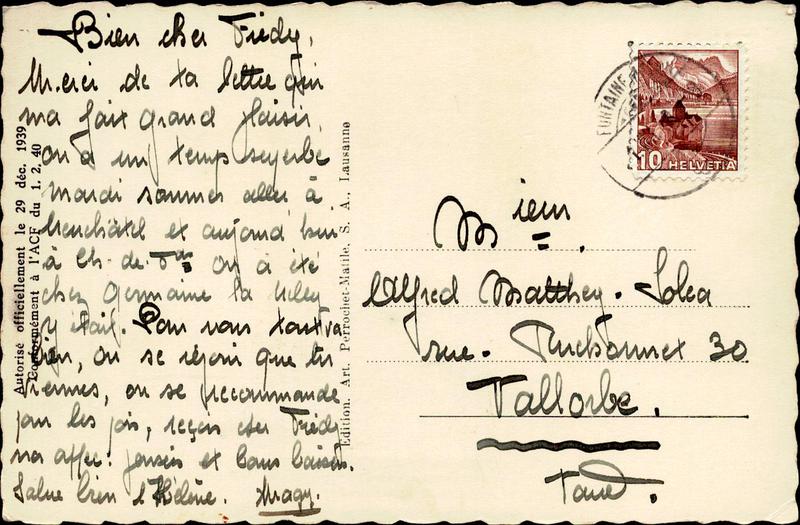 Bien cher Frédy,
Merci de ta lettre qui
ma fait grand plaisir,
on a un temps superbe
mardi sommes aller à
Neuchâtel et aujourd'hui
à Ch-de-Fds on a été
chez Germaine la
y était. Pour nous tout va
bien, on se réjoui que tu
viennes, on se recommande
pour les, reçois cher Frédy
nos affec: pensées et bons baisers.
Salue bien l'Hélène. Magy.
Autorisé officiellement le 29 déc. 1939
Conformément à l'ACF du 1. 2. 40
Edition. Art. Perrochet-Matile, S. A., Lausanne
FONTAINE
10 HELVETIA
Alfred Matthey-
rue. Ruchonnet 30
Vallorbe.
Vaud.